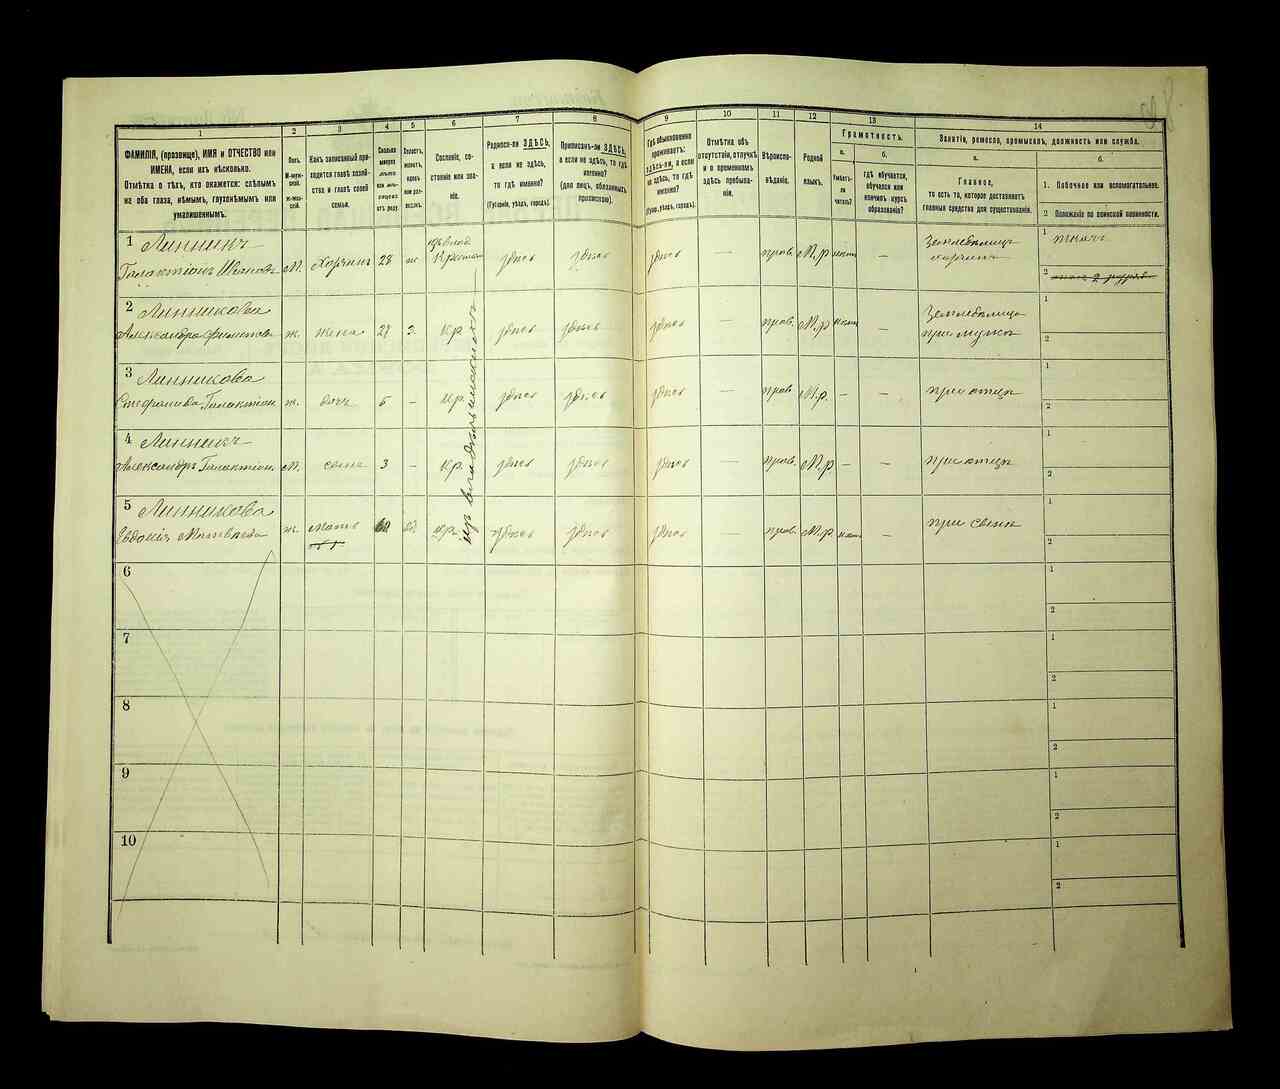 1
2
3
4
5
6
7
8
9
10
11
12
13
14
ФАМИЛІЯ, (прозвище), ИМЯ и ОТЧЕСТВО или
ИМЕНА, если ихъ нѣсколько.
Отмѣтка о тѣхъ, кто окажется: слѣпымъ
на оба глаза, нѣмымъ, глухонѣмымъ или
умалишеннымъ.
Полъ.
М-муж-
ской.
Ж-жен-
скій.
Какъ записанный при-
ходится главѣ хозяй-
ства и главѣ своей
семьи.
Сколько
минуло
лѣтъ
или мѣ-
сяцевъ
отъ роду.
Сословіе, со-
стояніе или зва-
ніе.
Родился-ли ЗДѢСЬ,
а если не здѣсь,
то гдѣ именно?
(Губернія, уѣздъ, городъ).
Приписанъ-ли ЗДѢСЬ,
а если не здѣсь, то гдѣ
именно?
(для лицъ, обязанныхъ
припискою).
Гдѣ обыкновенно
проживаетъ:
здѣсь-ли, а если
не здѣсь, то гдѣ
именно?
(Губер., уѣздъ, городъ).
Отмѣтка объ
отсутствіи, отлучкѣ
и о временномъ
здѣсь пребыва-
ніи.
Вѣроиспо-
вѣданіе.
Родной
языкъ.
Грамотность.
а.
Умѣетъ-
ли
читать?
б.
гдѣ обучается,
обучался или
кончилъ курсъ
образованія?
Занятіе, ремесло, промыселъ, должность или служба.
а.
Главное,
то есть то, которое доставляетъ
главныя средства для существованія.
б.
1. Побочное или вспомогательное.
2 Положеніе по воинской повинности.
1 Линникъ
Галактіонъ Ивановъ М. 28 Крестьян здѣсь здѣсь здѣсь — прав. М.р — Земледѣлецъ
хозяинъ
1 ткачъ
2
2 Линникова
Александра ж. жена 27 кр. здѣсь здѣсь здѣсь — прав. М.р — Земледѣлица
при мужѣ
1
2
3 Линникова
Стефанида Галактіон. ж. дочь 5 — кр. здѣсь здѣсь здѣсь — прав. М.р. — при отцѣ
1
2
4 Линникъ
Александръ Галактіон. М. сынъ 3 — кр. здѣсь здѣсь здѣсь — прав. М.р — — при отцѣ
1
2
5 Линникова
Евдокія Матвѣева ж. мать вд. кр. здѣсь здѣсь здѣсь — прав. М.р. — при сынѣ
1
2
6
1
2
7
1
2
8
1
2
9
1
2
10
1
2